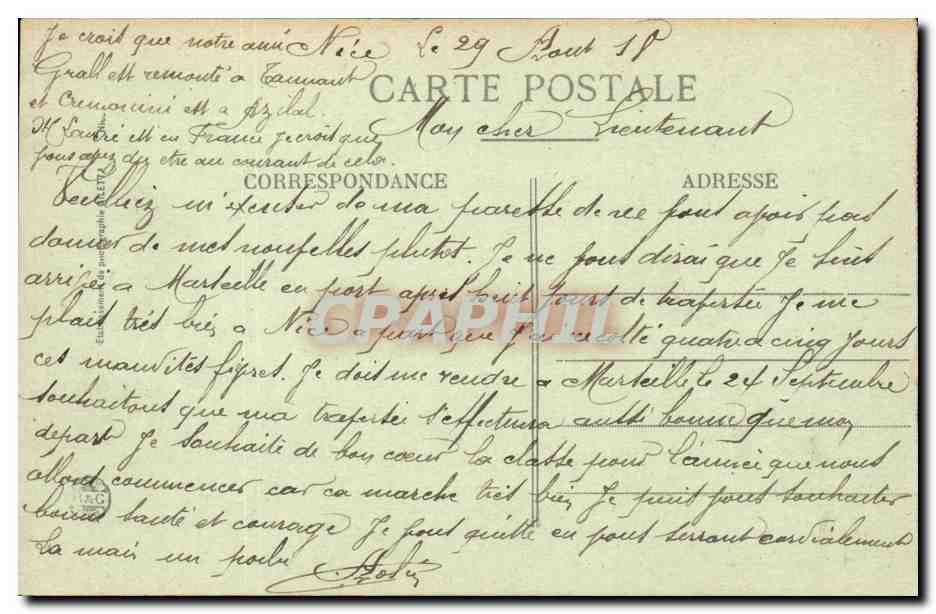 Je croit que notre ami
Grall est remonté a Tannant
et Cremonini est a Azilal.
Mr Lauré est en France je croit que
vous avez dez etre au courant de cela.
Nice Le 29 Aout 18
CARTE POSTALE
Mon cher Lieutenant
CORRESPONDANCE
ADRESSE
Veulliez m'exenser de ma paresse de ne vous avoir pas
donner de mes nouvelles plutot. Je ne vous dirai que Je suis
arrivée a Marseille en port apres huit Jours de traversée Je me
plait trés bien a Nice a part que J'ai recolté quatre a cinq Jours
ces maudites fievres. Je dois me rendre a Marseille le 24 Septembre
souhaitons que ma traversée s'effectuera aussi bonne que mon
départ Je souhaite de bon cœur la classe pour l'année que nous
allons commencer car ca marche trés bien Je puis vous souhaiter
bonne santé et courage Je vous quitte en vous serrant cordialement
la main un poilu
Etablissement de photographie
CPAPHIL